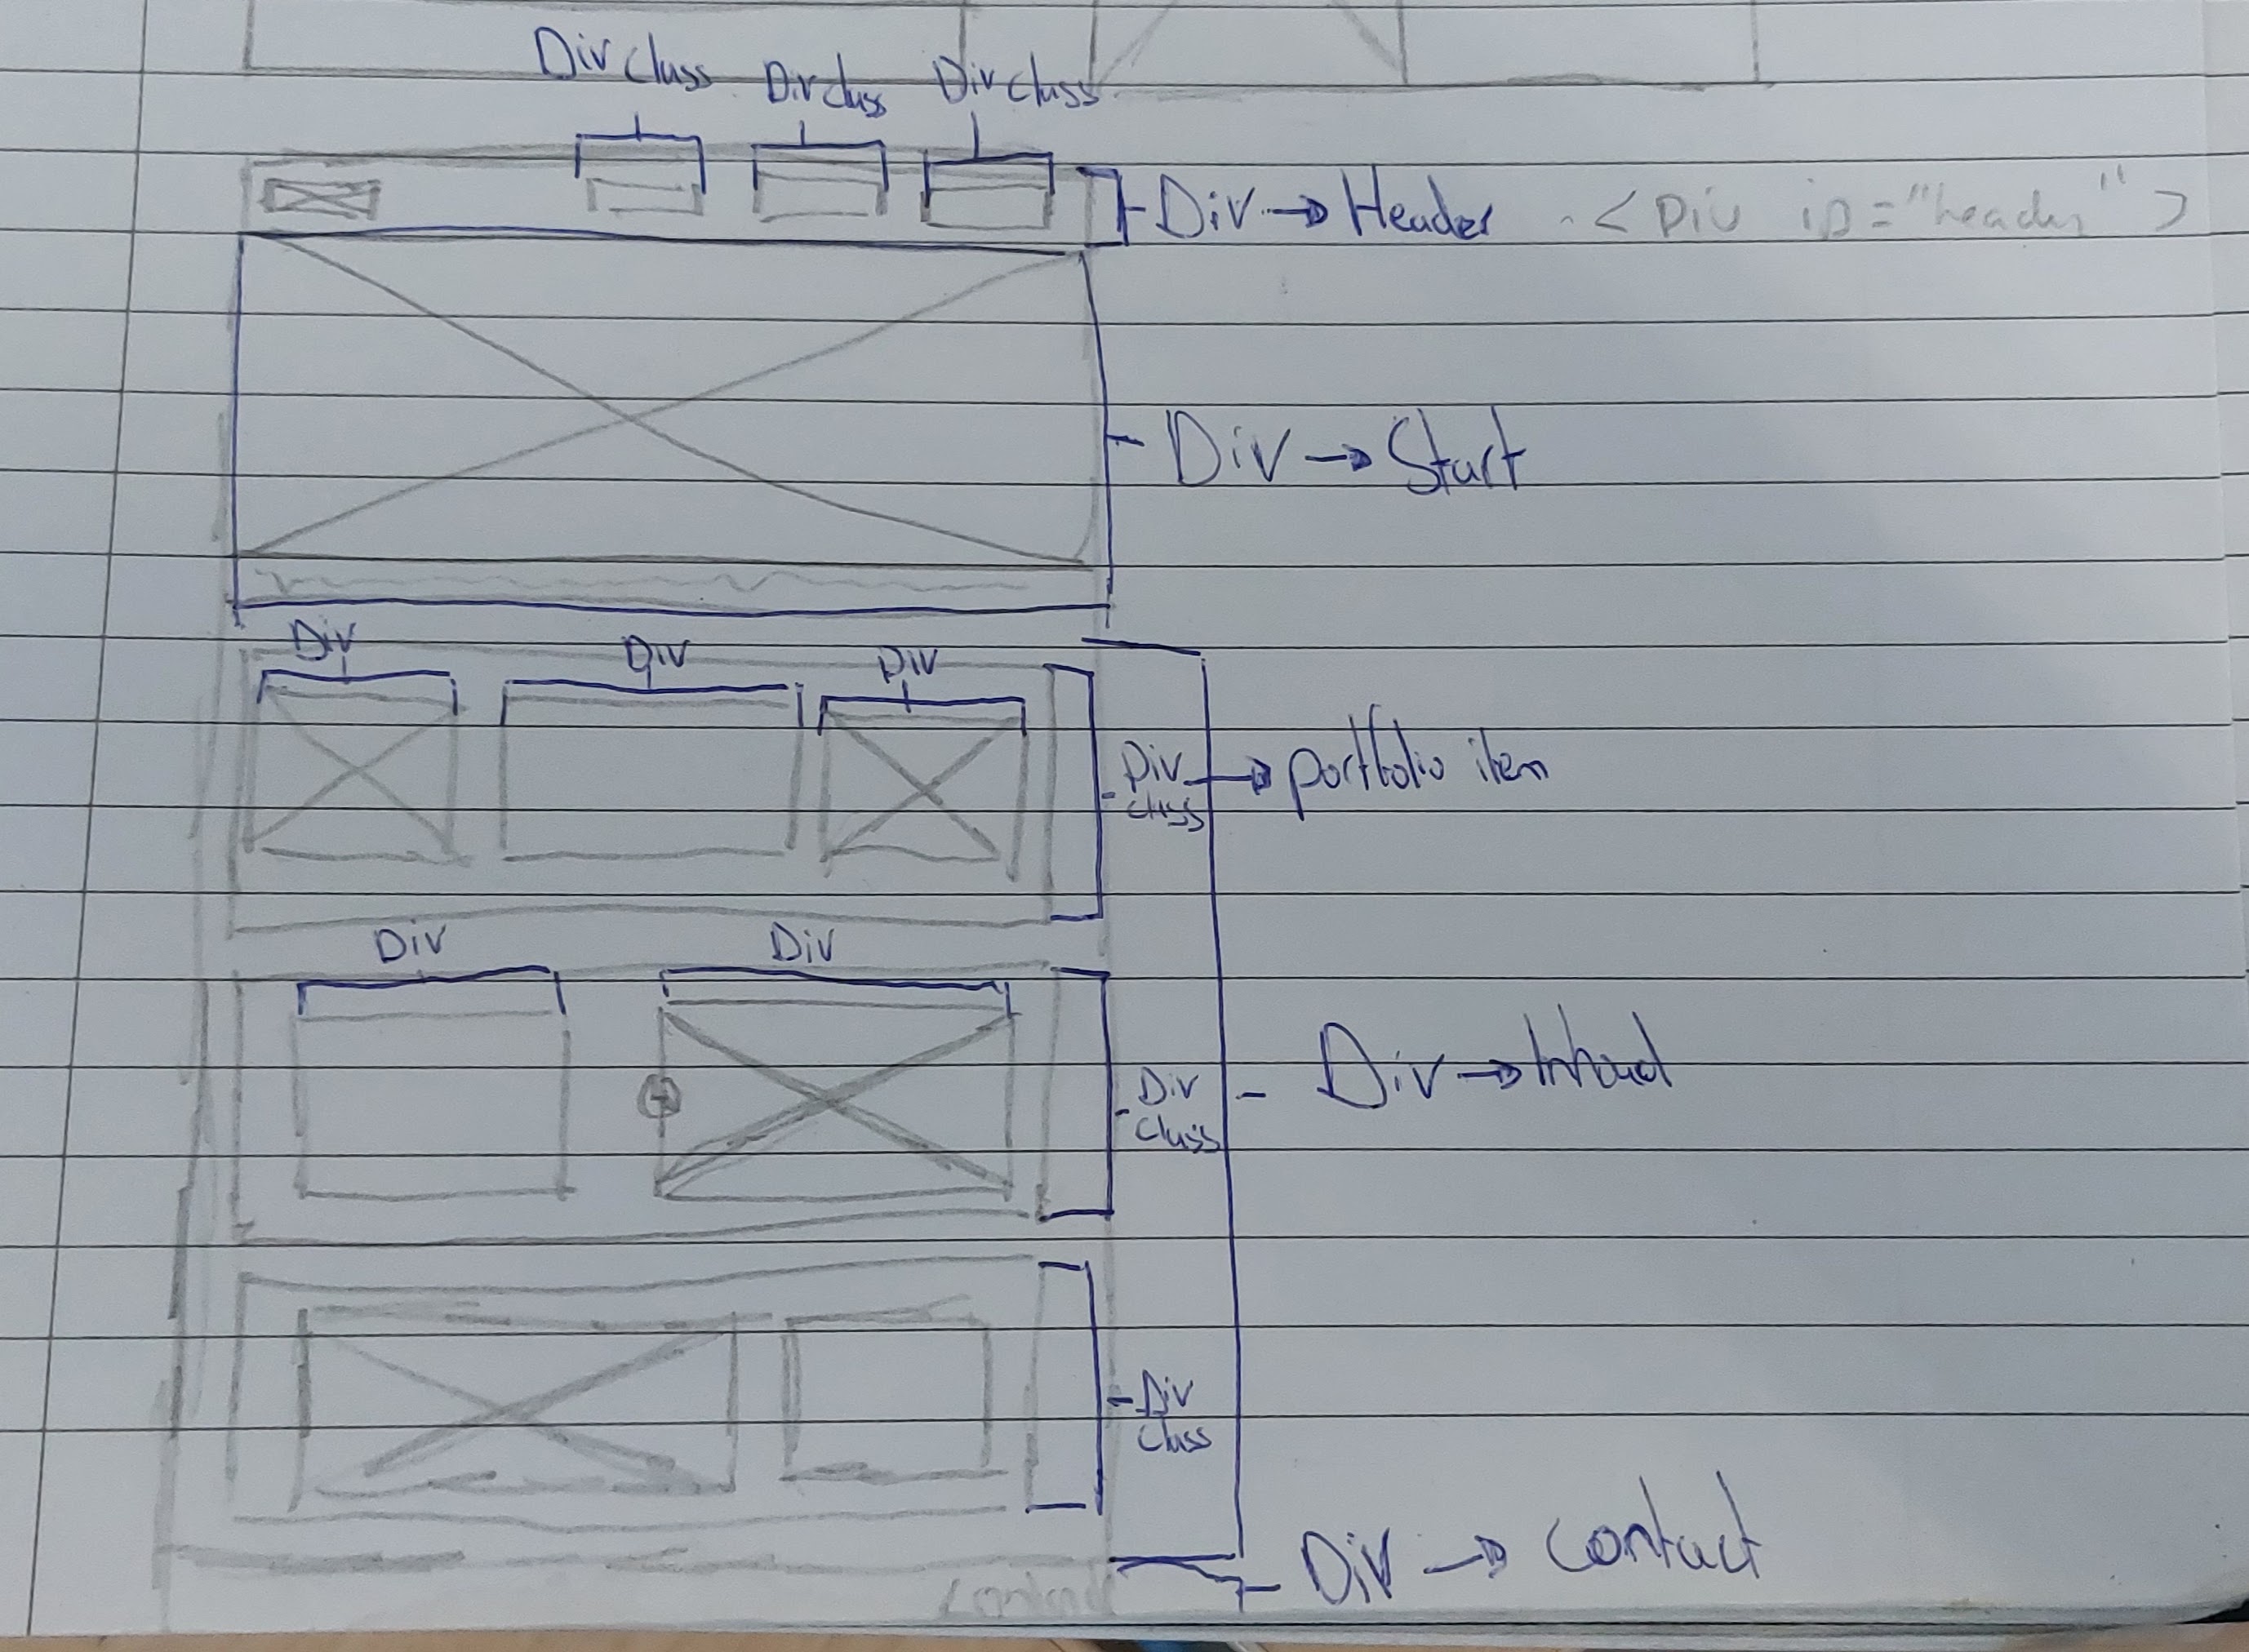 Div class Div class Div class
Div → Header <Div iD="header">
Div → Start
Div Div Div
Div → portfolio item
class
Div Div
Div
class
Div → Inhoud
Div
class
Div → contact
contact